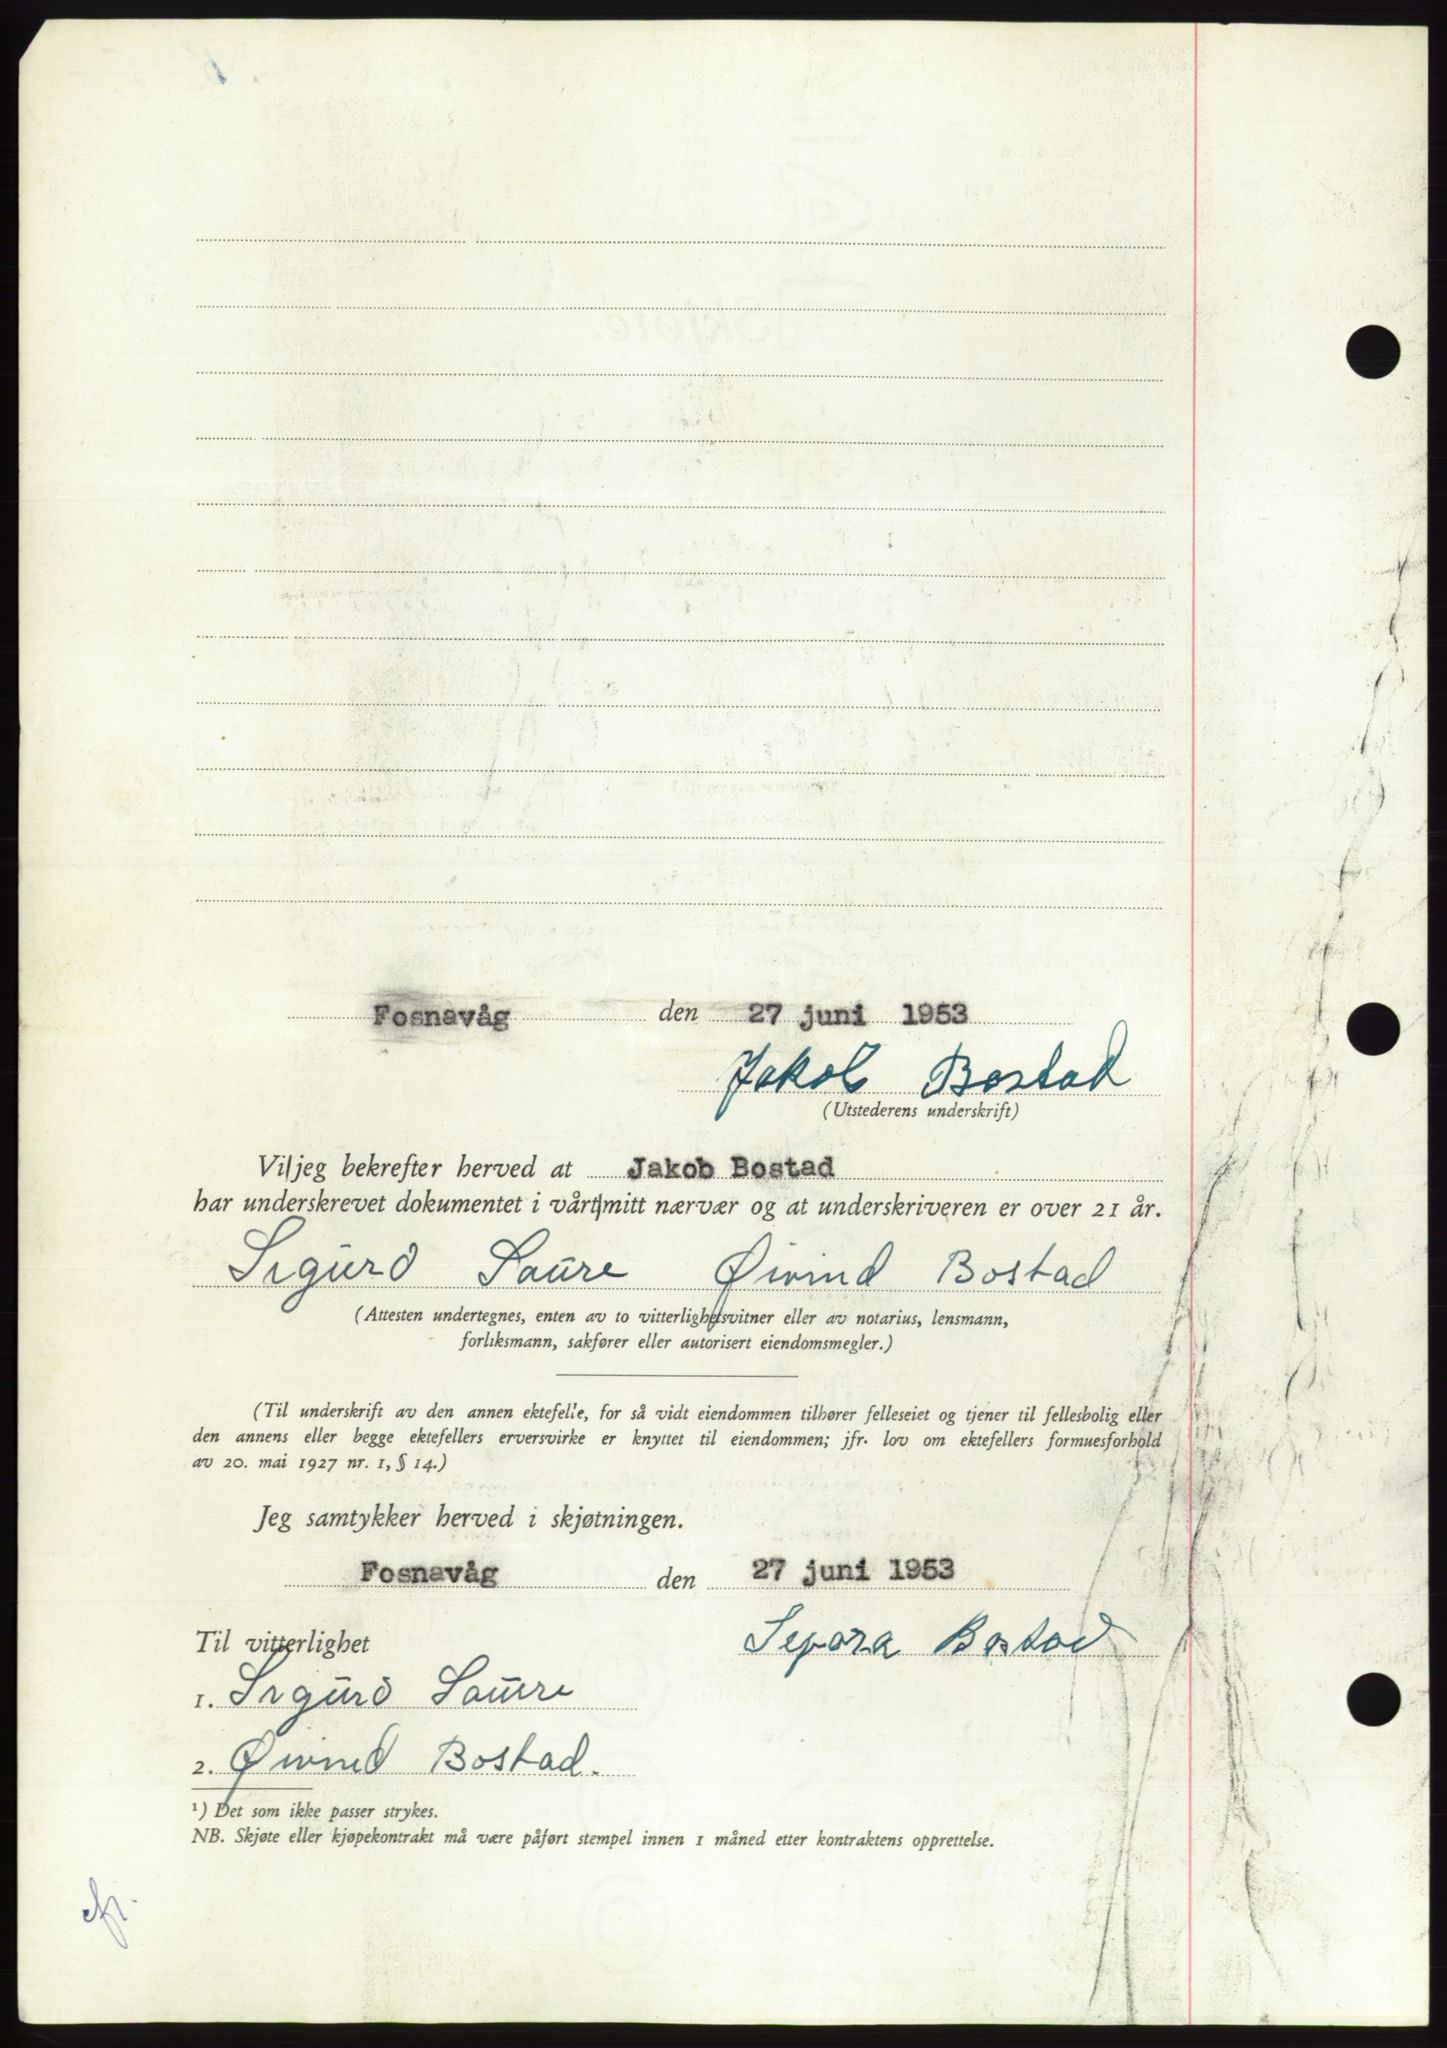 Fosnavåg den 27 juni 1953
Jakob Bostad
(Utstederens underskrift)
Vi/jeg bekrefter herved at Jakob Bostad
har underskrevet dokumentet i vårt/mitt nærvær og at underskriveren er over 21 år.
Sigurd Saure Øivind Bostad
(Attesten undertegnes, enten av to vitterlighetsvitner eller av notarius, lensmann,
forliksmann, sakfører eller autorisert eiendomsmegler.)
(Til underskrift av den annen ektefelle, for så vidt eiendommen tilhører felleseiet og tjener til fellesbolig eller
den annens eller begge ektefellers erversvirke er knyttet til eiendommen; jfr. lov om ektefellers formuesforhold
av 20. mai 1927 nr. 1, § 14.)
Jeg samtykker herved i skjøtningen.
Fosnavåg den 27 juni 1953
Sepora Bostad
Til vitterlighet
1. Sigurd Saure
2. Øivind Bostad.
¹) Det som ikke passer strykes.
NB. Skjøte eller kjøpekontrakt må være påført stempel innen 1 måned etter kontraktens opprettelse.